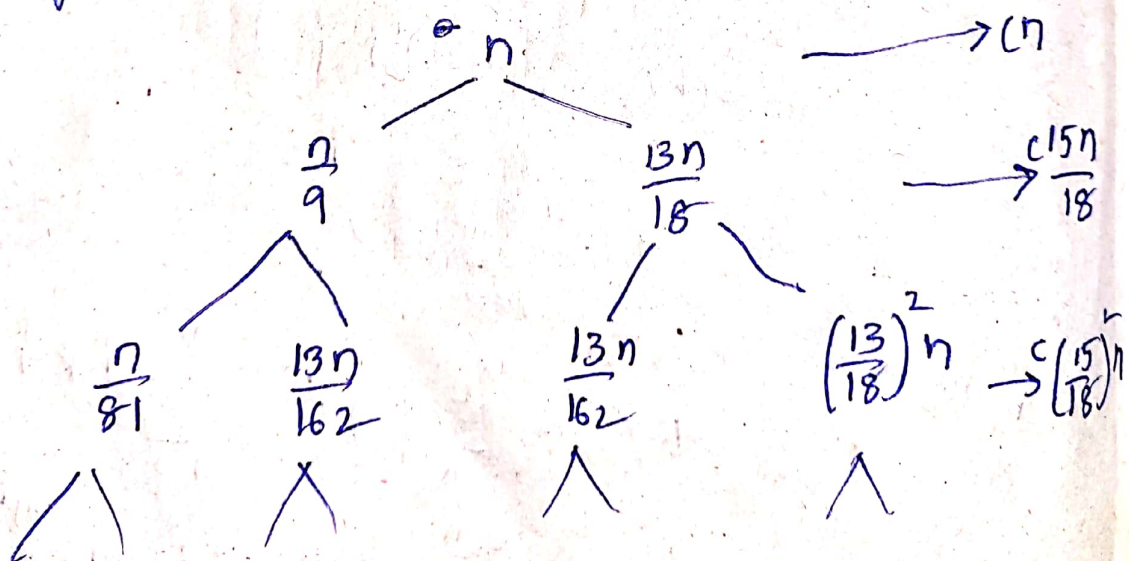 n → cn
n/9 13n/18 → c 15n/18
n/81 13n/162 13n/162 (13/18)² n → c (15/18)² n